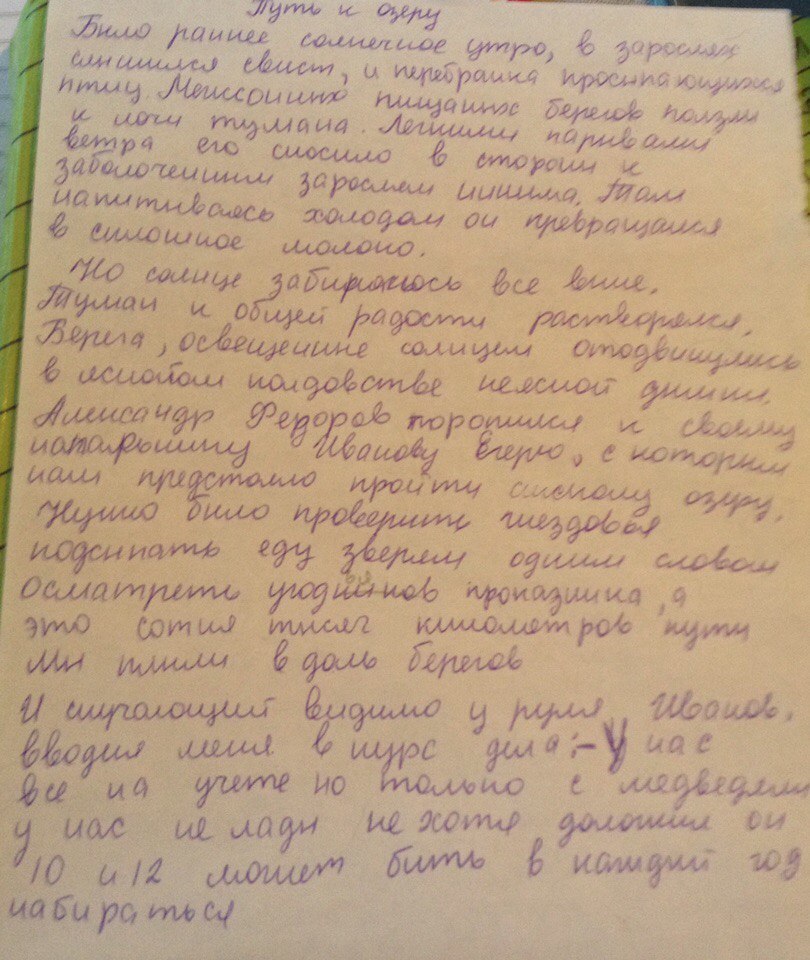 Путь к озеру
Было раннее солнечное утро, в зарослях
слышился свист, и перебранка просыпающихся
птиц. песщаных берегов ползли
к лочи тумана. Легкими парывами
ветра его сносило в сторони к
заболоченным зарослем Там
напитываясь холодом он превращался
в сплошное молоко.
Но солнце забиралось все выше.
Туман к общей радости растворялся.
Берега, освещенние солнцем отодвинулись
в колдовстве неясной дымки.
Александр Федоров торопился к своему
Иванову Егерю, с которым
нам предстояло пройти озеру.
Нужно было проверить гнездовья
подсыпать еду зверям одним словом
осматреть проказника, а
это сотня тысяч километров пути
Мы плыли в доль берегов
И скучающий видимо у руля Иванов.
вводил меня в курс дела:- У нас
все на учете но только с медведями
у нас не лады не хотя доложил он
10 и 12 может быть в каждый год
набираться